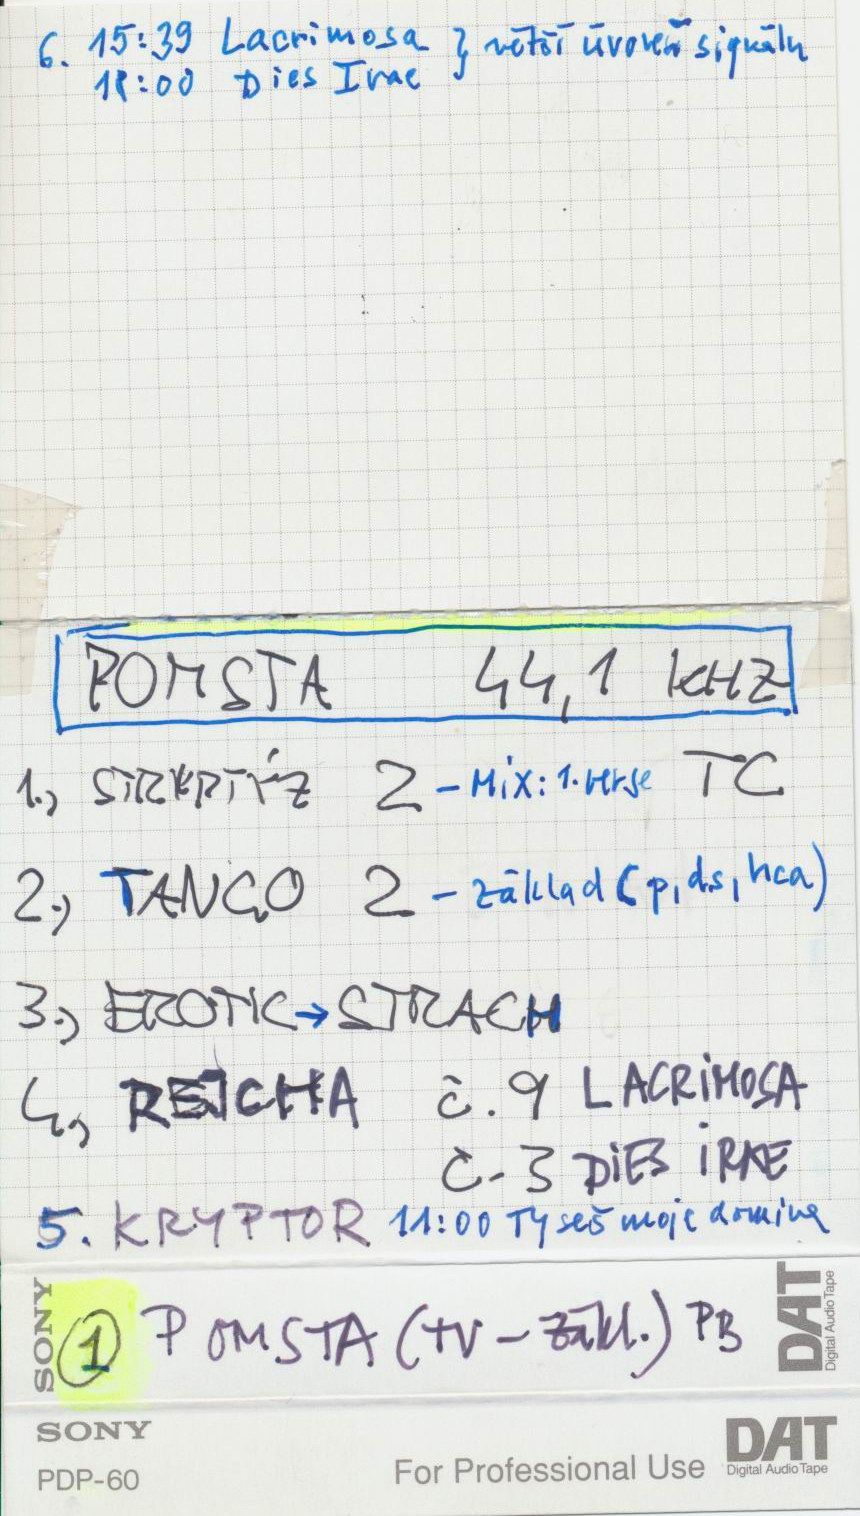 6. 15:39 Lacrimosa } větší úroveň signálu
18:00 Dies Irae
POMSTA 44,1 KHZ
1., STRKPTÝZ 2 - Mix: 1. verse TC
2., TANGO 2 - základ (p, ds, hca)
3., EROTIC → STRACH
4., REJCHA č. 9 LACRIMOSA
č. 3 DIES IRAE
5. KRYPTOR 11:00 Ty seš moje domina
SONY 1 POMSTA (TV - zákl.) PB DAT Digital Audio Tape
SONY DAT
PDP-60 For Professional Use Digital Audio Tape